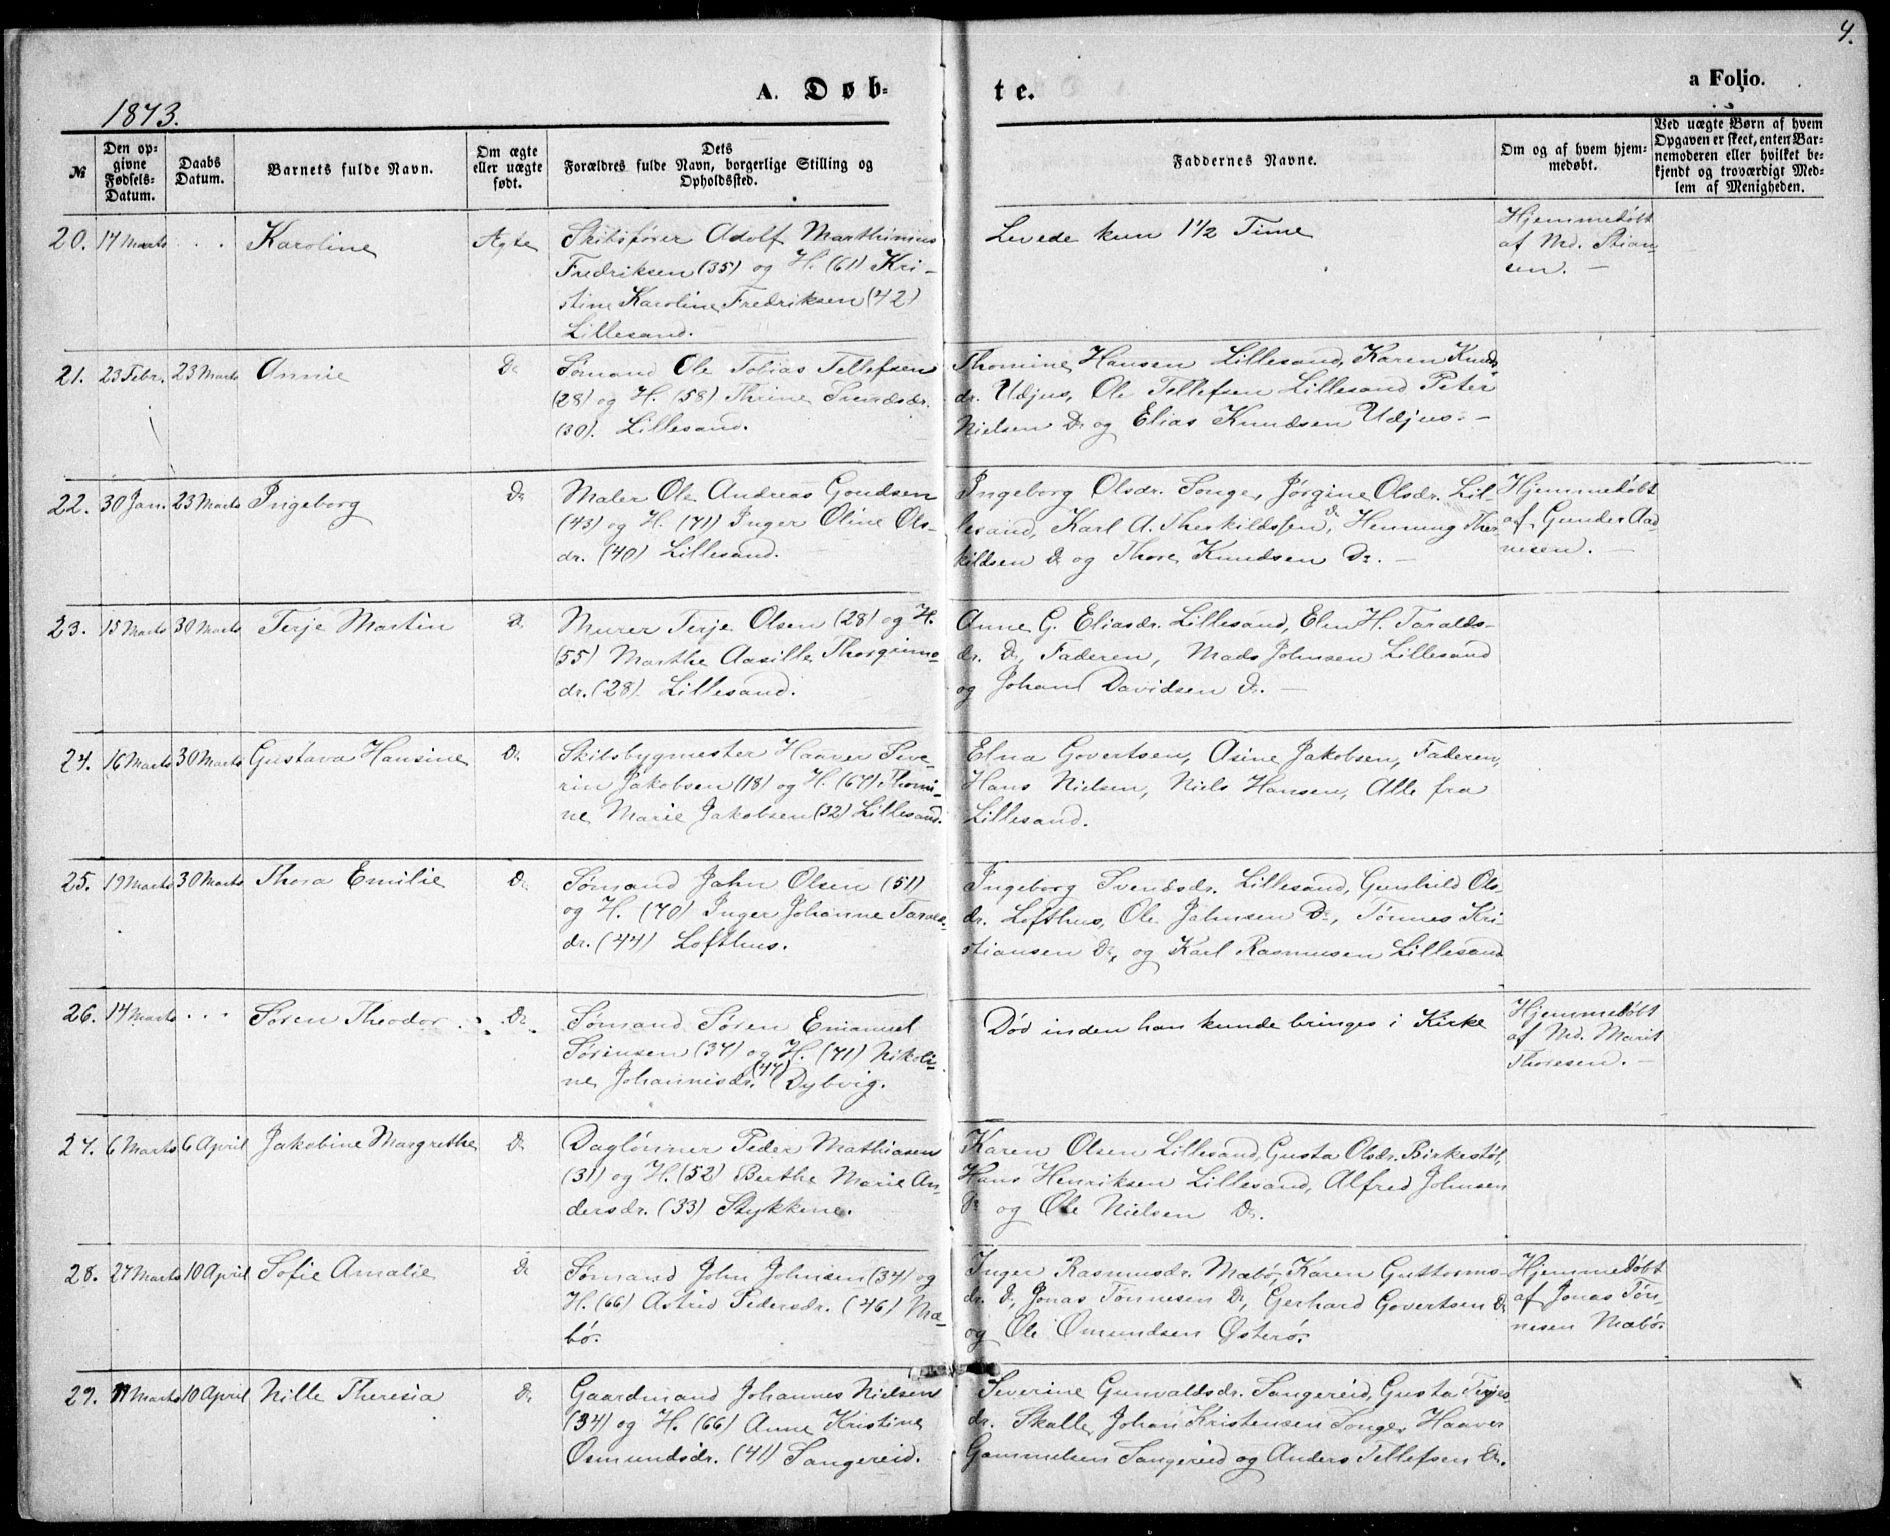 4.
A. Døb-
te.
a Folio.
1873.
№
Den op-
givne
Fødsels-
Datum.
Daabs
Datum.
Barnets fulde Navn.
Om ægte
eller uægte
født.
Dets
Forældres fulde Navn, borgerlige Stilling og
Opholdssted.
Faddernes Navne.
Om og af hvem hjem-
medøbt.
Ved uægte Børn af hvem
Opgaven er skeet, enten Bar-
nemoderen eller hvilket be-
kjendt og troværdigt Med-
lem af Menigheden.
20. 17 Marts . . . Karoline Ægte
Skibsfører Adolf Marthinius
Fredriksen (35) og H. (61) Kri-
stine Karoline Fredriksen (42)
Lillesand.
Levede kun 1 1/2 Time
Hjemmedøbt
af Md. Stian-
sen. -
21. 23 Febr. 23 Marts Annie Do
Sømand Ole Tobias Tellefsen
(28) og H. (58) Thrine Svendsdr.
(30). Lillesand.
Thomine Hansen Lillesand, Karen Knuds
dr. Udjus, Ole Tellefsen Lillesand Peter
Nielsen Do og Elias Knudsen Udjus. -
22. 30 Jan. 23 Marts Ingeborg Do
Maler Ole Andreas Gundsen
(43) og H. (71) Inger Oline Ols-
dr. (40) Lillesand.
Ingeborg Olsdr. Songe, Jørgine Olsdr. Lil-
lesand, Karl A. Therkildsen, Do Henning Ther-
kildsen Do og Thore Knudsen Do. -
Hjemmedøbt
af Gunder Aad-
nesen. -
23. 15 Marts 30 Marts Terje Martin Do
Murer Terje Olsen (28) og H.
(55) Marthe Aasille Thorgrims-
dr. (28) Lillesand.
Anne G. Eliasdr. Lillesand, Elen H. Taralds-
dr. Do, Faderen, Mads Johnsen Lillesand
og Johan Davidsen Do. -
24. 16 Marts 30 Marts Gustava Hansine Do
Skibsbygmester Haaver Seve-
rin Jakobsen (18) og H. (67) Thomi-
ne Marie Jakobsen (32) Lillesand.
Elna Govertsen, Asine Jakobsen, Faderen,
Hans Nielsen, Niels Hansen, Alle fra
Lillesand.
25. 19 Marts 30 Marts Thora Emilie Do
Sømand John Olsen (51)
og H. (70) Inger Johanne Taralds-
dr. (44) Lofthus.
Ingeborg Svendsdr. Lillesand, Gunhild Ols-
dr. Lofthus, Ole Johnsen Do, Tønnes Kri-
stiansen Do, og Karl Rasmusen Lillesand
26. 14 Marts . . . Søren Theodor Do
Sømand Søren Emanuel
Sørensen (37) og H. (71) Nikoli-
ne Johannisdr. (47) Dybvig.
Død inden han kunde bringes i Kirke
Hjemmedøbt
af Md. Marit
Thoresen. -
27. 6 Marts 6 April Jakobine Margrethe Do
Daglønner Peder Mathiasen
(31) og H. (52) Berthe Marie An-
dersdr. (33) Stykkene.
Karen Olsen Lillesand, Gusta Olsdr. Birkestøl,
Hans Henriksen Lillesand, Alfred Johnsen
Do og Ole Nielsen Do.
28. 27 Marts 10 April Sofie Amalie Do
Sømand John Johnsen (34) og
H. (66) Astrid Pedersdr. (46) Mæ-
bø.
Inger Rasmusdr. Mæbø, Karen Guttorms-
dr. Do, Jonas Tønnesen Do, Gerhard Govertsen Do
og Ole Omundsen Østerø.
Hjemmedøbt
af Jonas Tøn-
nesen Mæbø.
29. 11 Marts 10 April Nille Theresia Do
Gaardmand Johannes Nielsen
(34) og H. (66) Anne Kristine
Osmundsdr. (41) Sangereid.
Severine Gunvaldsdr. Sangereid, Gusta Terjes-
dr. Skalle, Johan Kristensen Songe, Haaver
Gommelsen Sangereid og Anders Tellefsen Do.